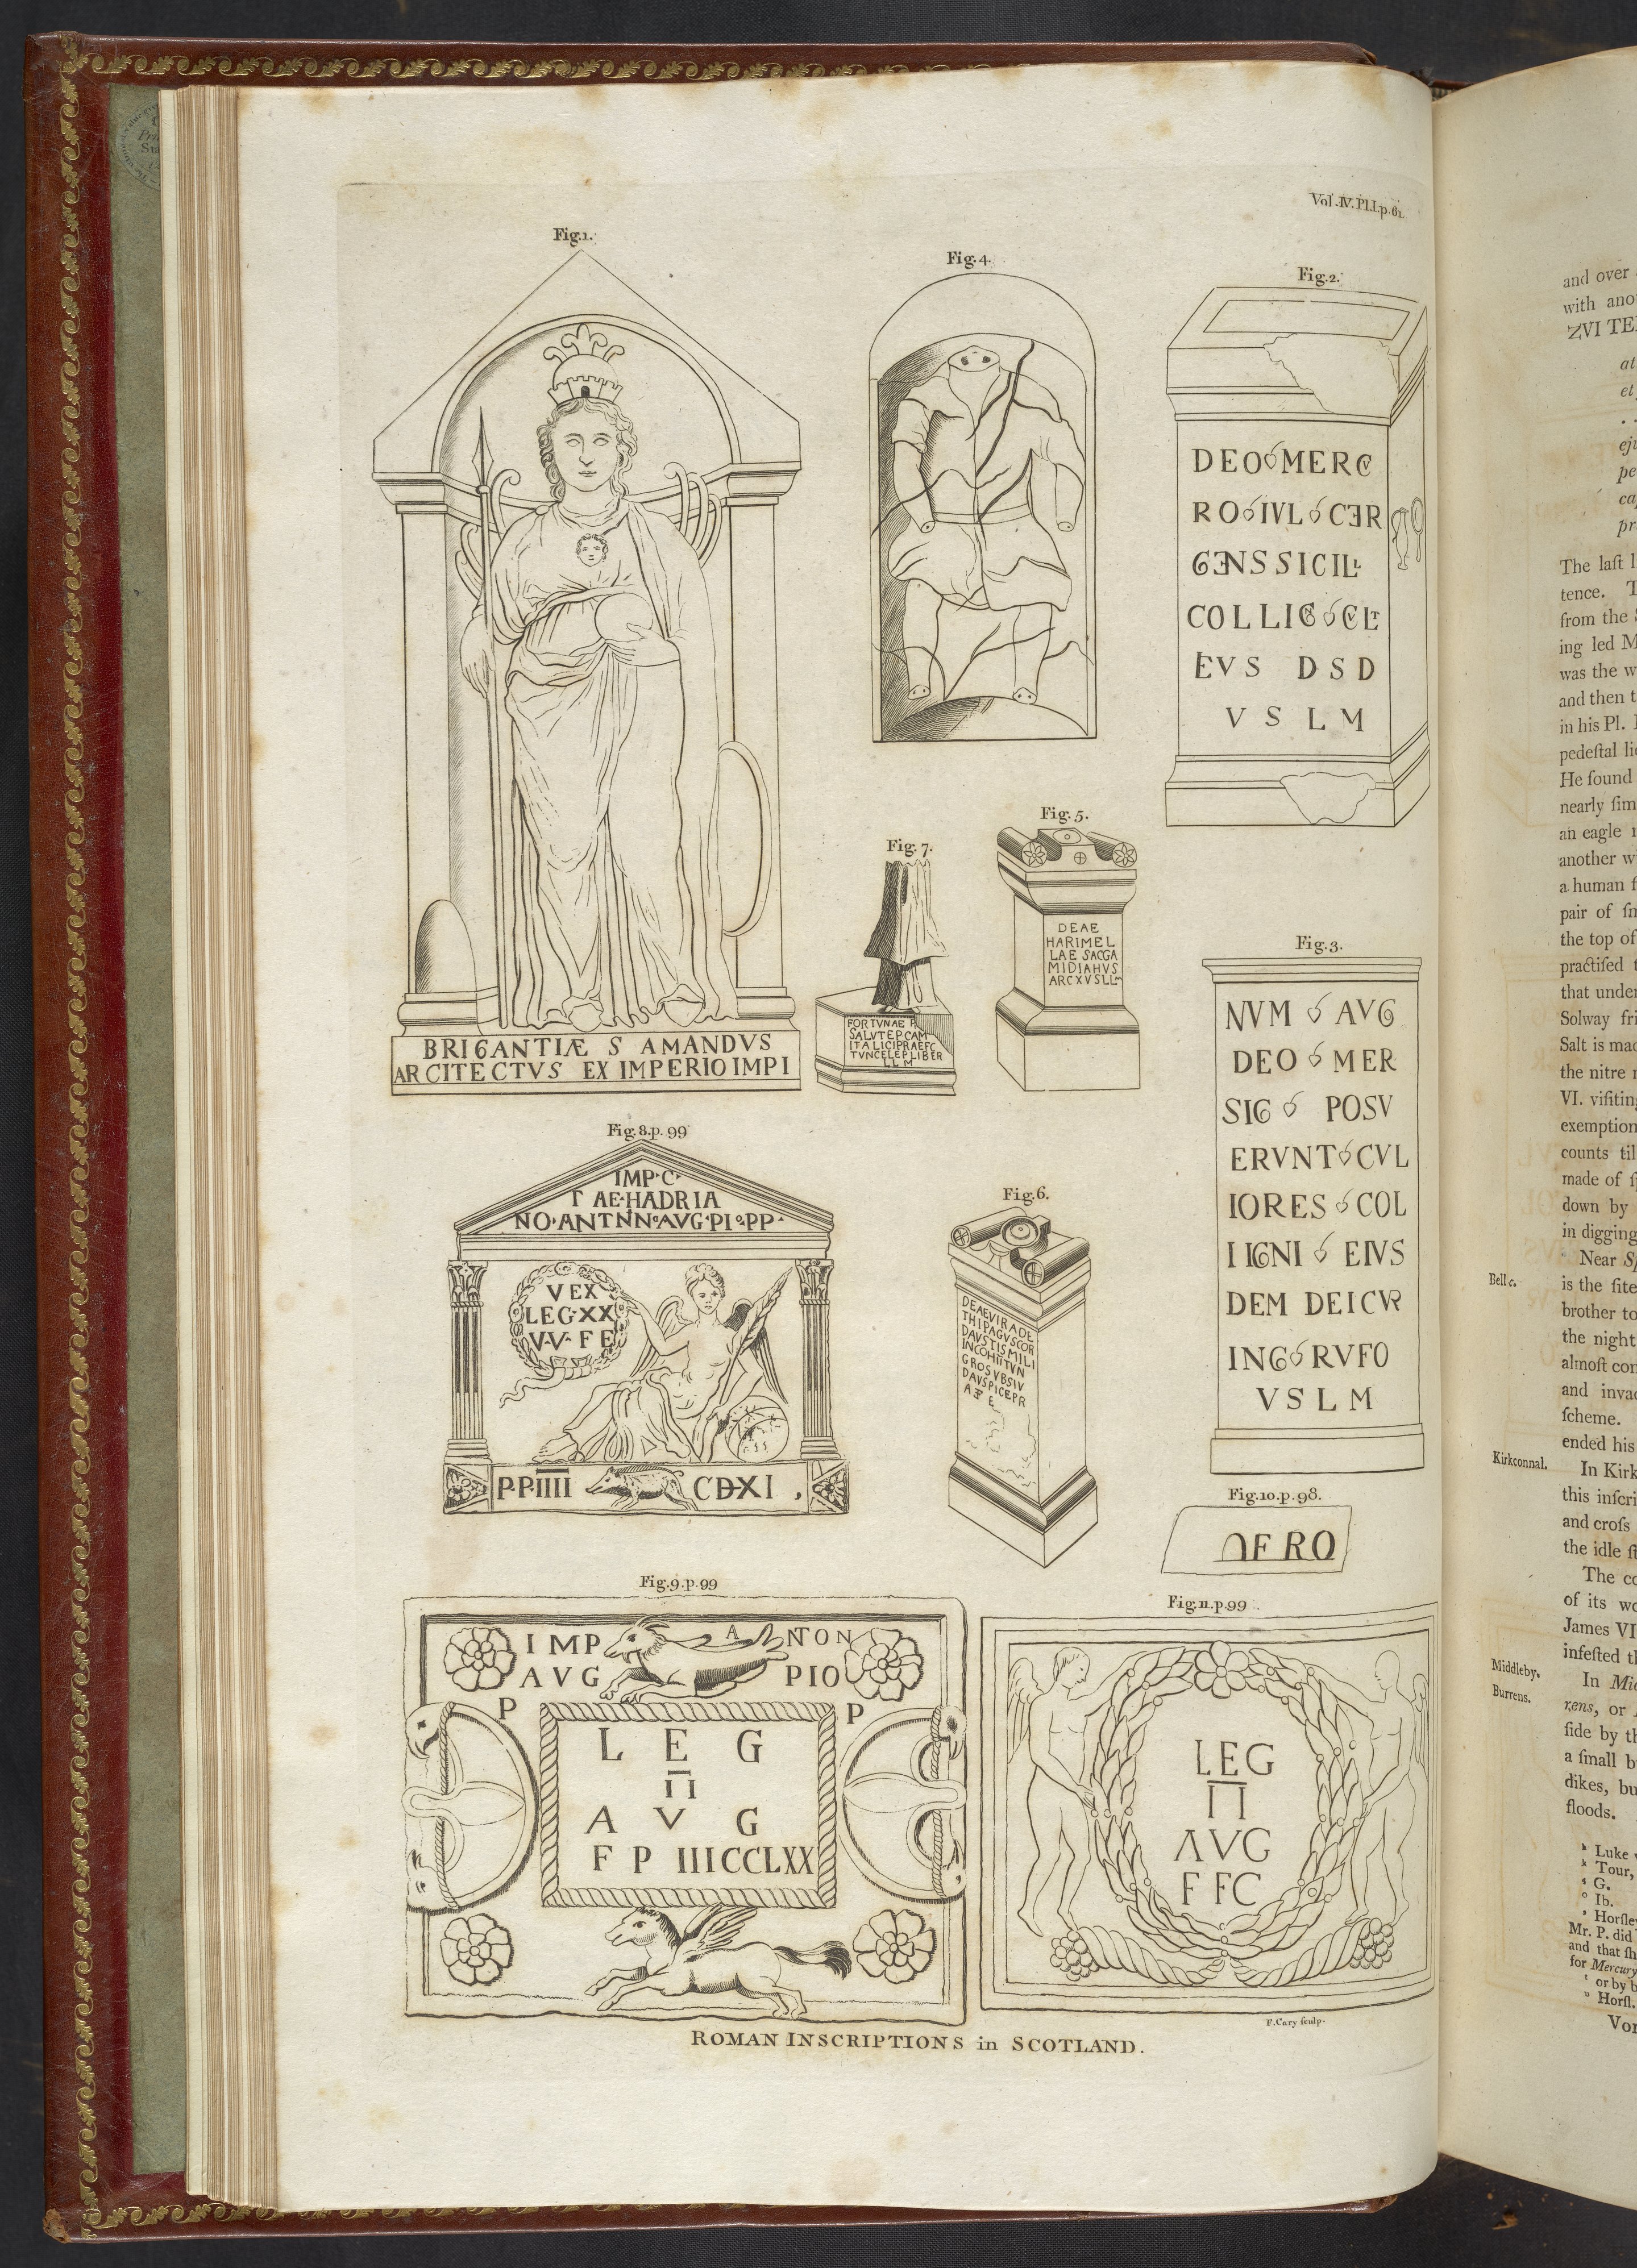 Vol. IV. Pl. I. p. 61.
Fig. 1.
BRIGANTIÆ S AMANDVS
ARCITECTVS EX IMPERIO IMPI
Fig. 4.
Fig. 2.
DEO MERC
RO IVL CER
GENS SICIL
COLLIG CLT
EVS DSD
V S L M
Fig. 7.
FORTVNAE P
SALVTEPCAM
ITALICIPRAEFC
TVNCELEPLIBER
LLM
Fig. 5.
DEAE
HARIMEL
LAE SACGA
MIDIAHVS
ARCXVSLLM
Fig. 3.
NVM AVG
DEO MER
SIG POSV
ERVNT CVL
IORES COL
I IGNI EIVS
DEM DEICVR
ING RVFO
V S L M
Fig. 8. p. 99
IMP·C·
T AE·HADRIA
NO·ANTNN°AVG·PI°PP·
VEX
LEG·XX
V·V· F E
P·P·IIII CDXI ,
Fig. 6.
DEAEVIRADE
THIPAGVSCON
DAVSTISMILI
INCOHIITVN
GROSVBSIV
DAVSPICEPR
A E
Fig. 10. p. 98.
OFRO
Fig. 9. p. 99
IMP ANTON
AVG PIO
P P
L E G
II
A V G
F P IIICCLXX
Fig. 11. p. 99
LEG
II
AVG
F FC
F. Cary sculp.
ROMAN INSCRIPTIONS in SCOTLAND.
and over
with ano
ZVI TE
at
et
. .
ej
pe
ca
pr
The laſt l
tence. T
from the
ing led M
was the w
and then t
in his Pl.
pedeſtal lie
He found
nearly ſim
an eagle
another w
a human f
pair of ſn
the top of
practiſed t
that under
Solway fri
Salt is mad
the nitre
VI. viſiting
exemption
counts til
made of ſ
down by
in digging
Near S
Bell c.
is the ſite
brother to
the night
almoſt con
and invad
ſcheme.
ended his
Kirkconnal.
In Kirk
this inſcri
and croſs
the idle ſt
The co
of its wo
James VI
infeſted th
Middleby.
In Mid
Burrens.
rens, or
ſide by th
a ſmall b
dikes, bu
floods.
Luke
Tour,
G.
Ib.
Horſley
Mr. P. did
and that ſh
for Mercury
or by b
Horſl.
Vol